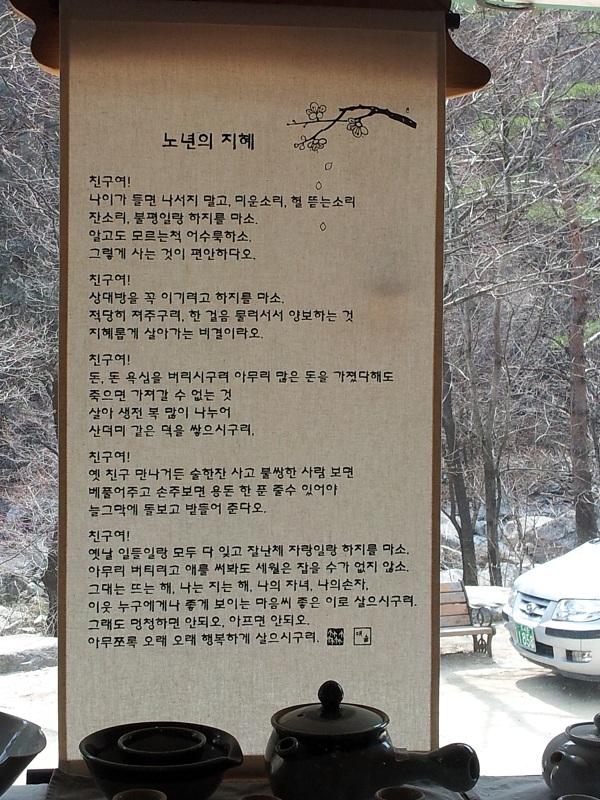 노년의 지혜
친구여!
나이가 들면 나서지 말고, 미운소리, 헐 뜯는소리
잔소리, 불평일랑 하지를 마소.
알고도 모르는척 어수룩하소.
그렇게 사는 것이 편안하다오.
친구여!
상대방을 꼭 이기려고 하지를 마소.
적당히 져주구려, 한 걸음 물러서서 양보하는 것
지혜롭게 살아가는 비결이라오.
친구여!
돈, 돈 욕심을 버리시구려 아무리 많은 돈을 가졌다해도
죽으면 가져갈 수 없는 것
살아 생전 복 많이 나누어
산더미 같은 덕을 쌓으시구려.
친구여!
옛 친구 만나거든 술한잔 사고 불쌍한 사람 보면
베풀어주고 손주보면 용돈 한 푼 줄수 있어야
늘그막에 돌보고 받들어 준다오.
친구여!
옛날 일들일랑 모두 다 잊고 잘난체 자랑일랑 하지를 마소.
아무리 버티려고 애를 써봐도 세월은 잡을 수가 없지 않소.
그대는 뜨는 해, 나는 지는 해, 나의 자녀, 나의손자,
이웃 누구에게나 좋게 보이는 마음씨 좋은 이로 살으시구려.
그래도 멍청하면 안되오, 아프면 안되오.
아무쪼록 오래 오래 행복하게 살으시구려.